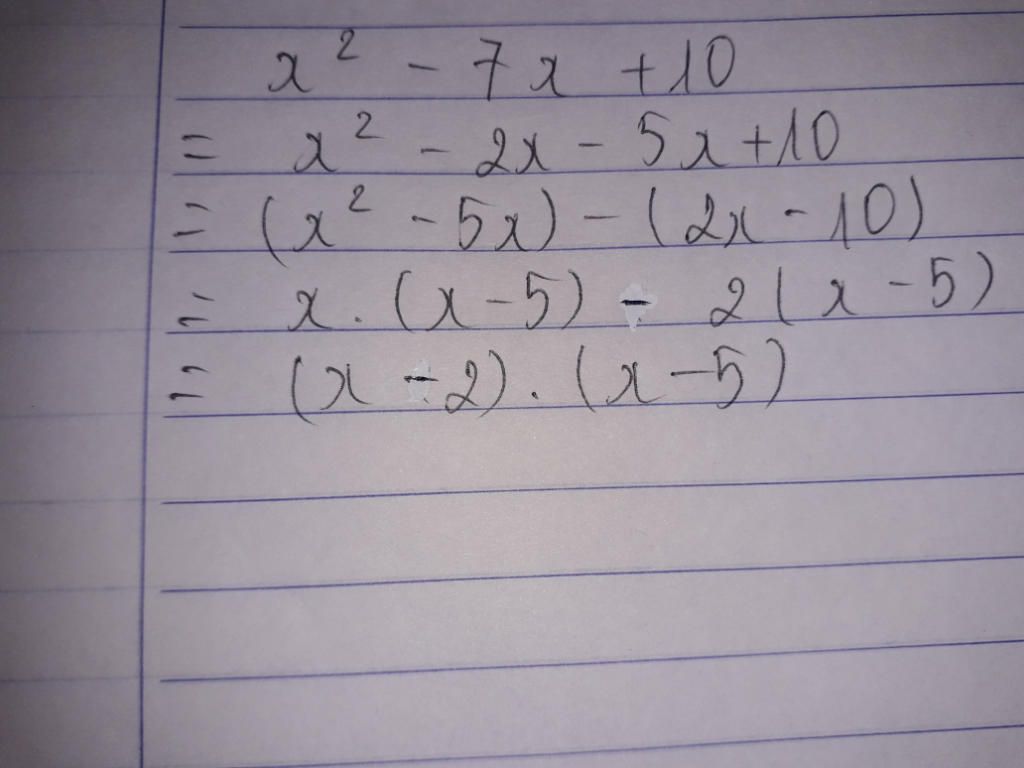 x² - 7x + 10
= x² - 2x - 5x + 10
= (x² - 5x) - (2x - 10)
= x . (x - 5) - 2(x - 5)
= (x - 2) . (x - 5)